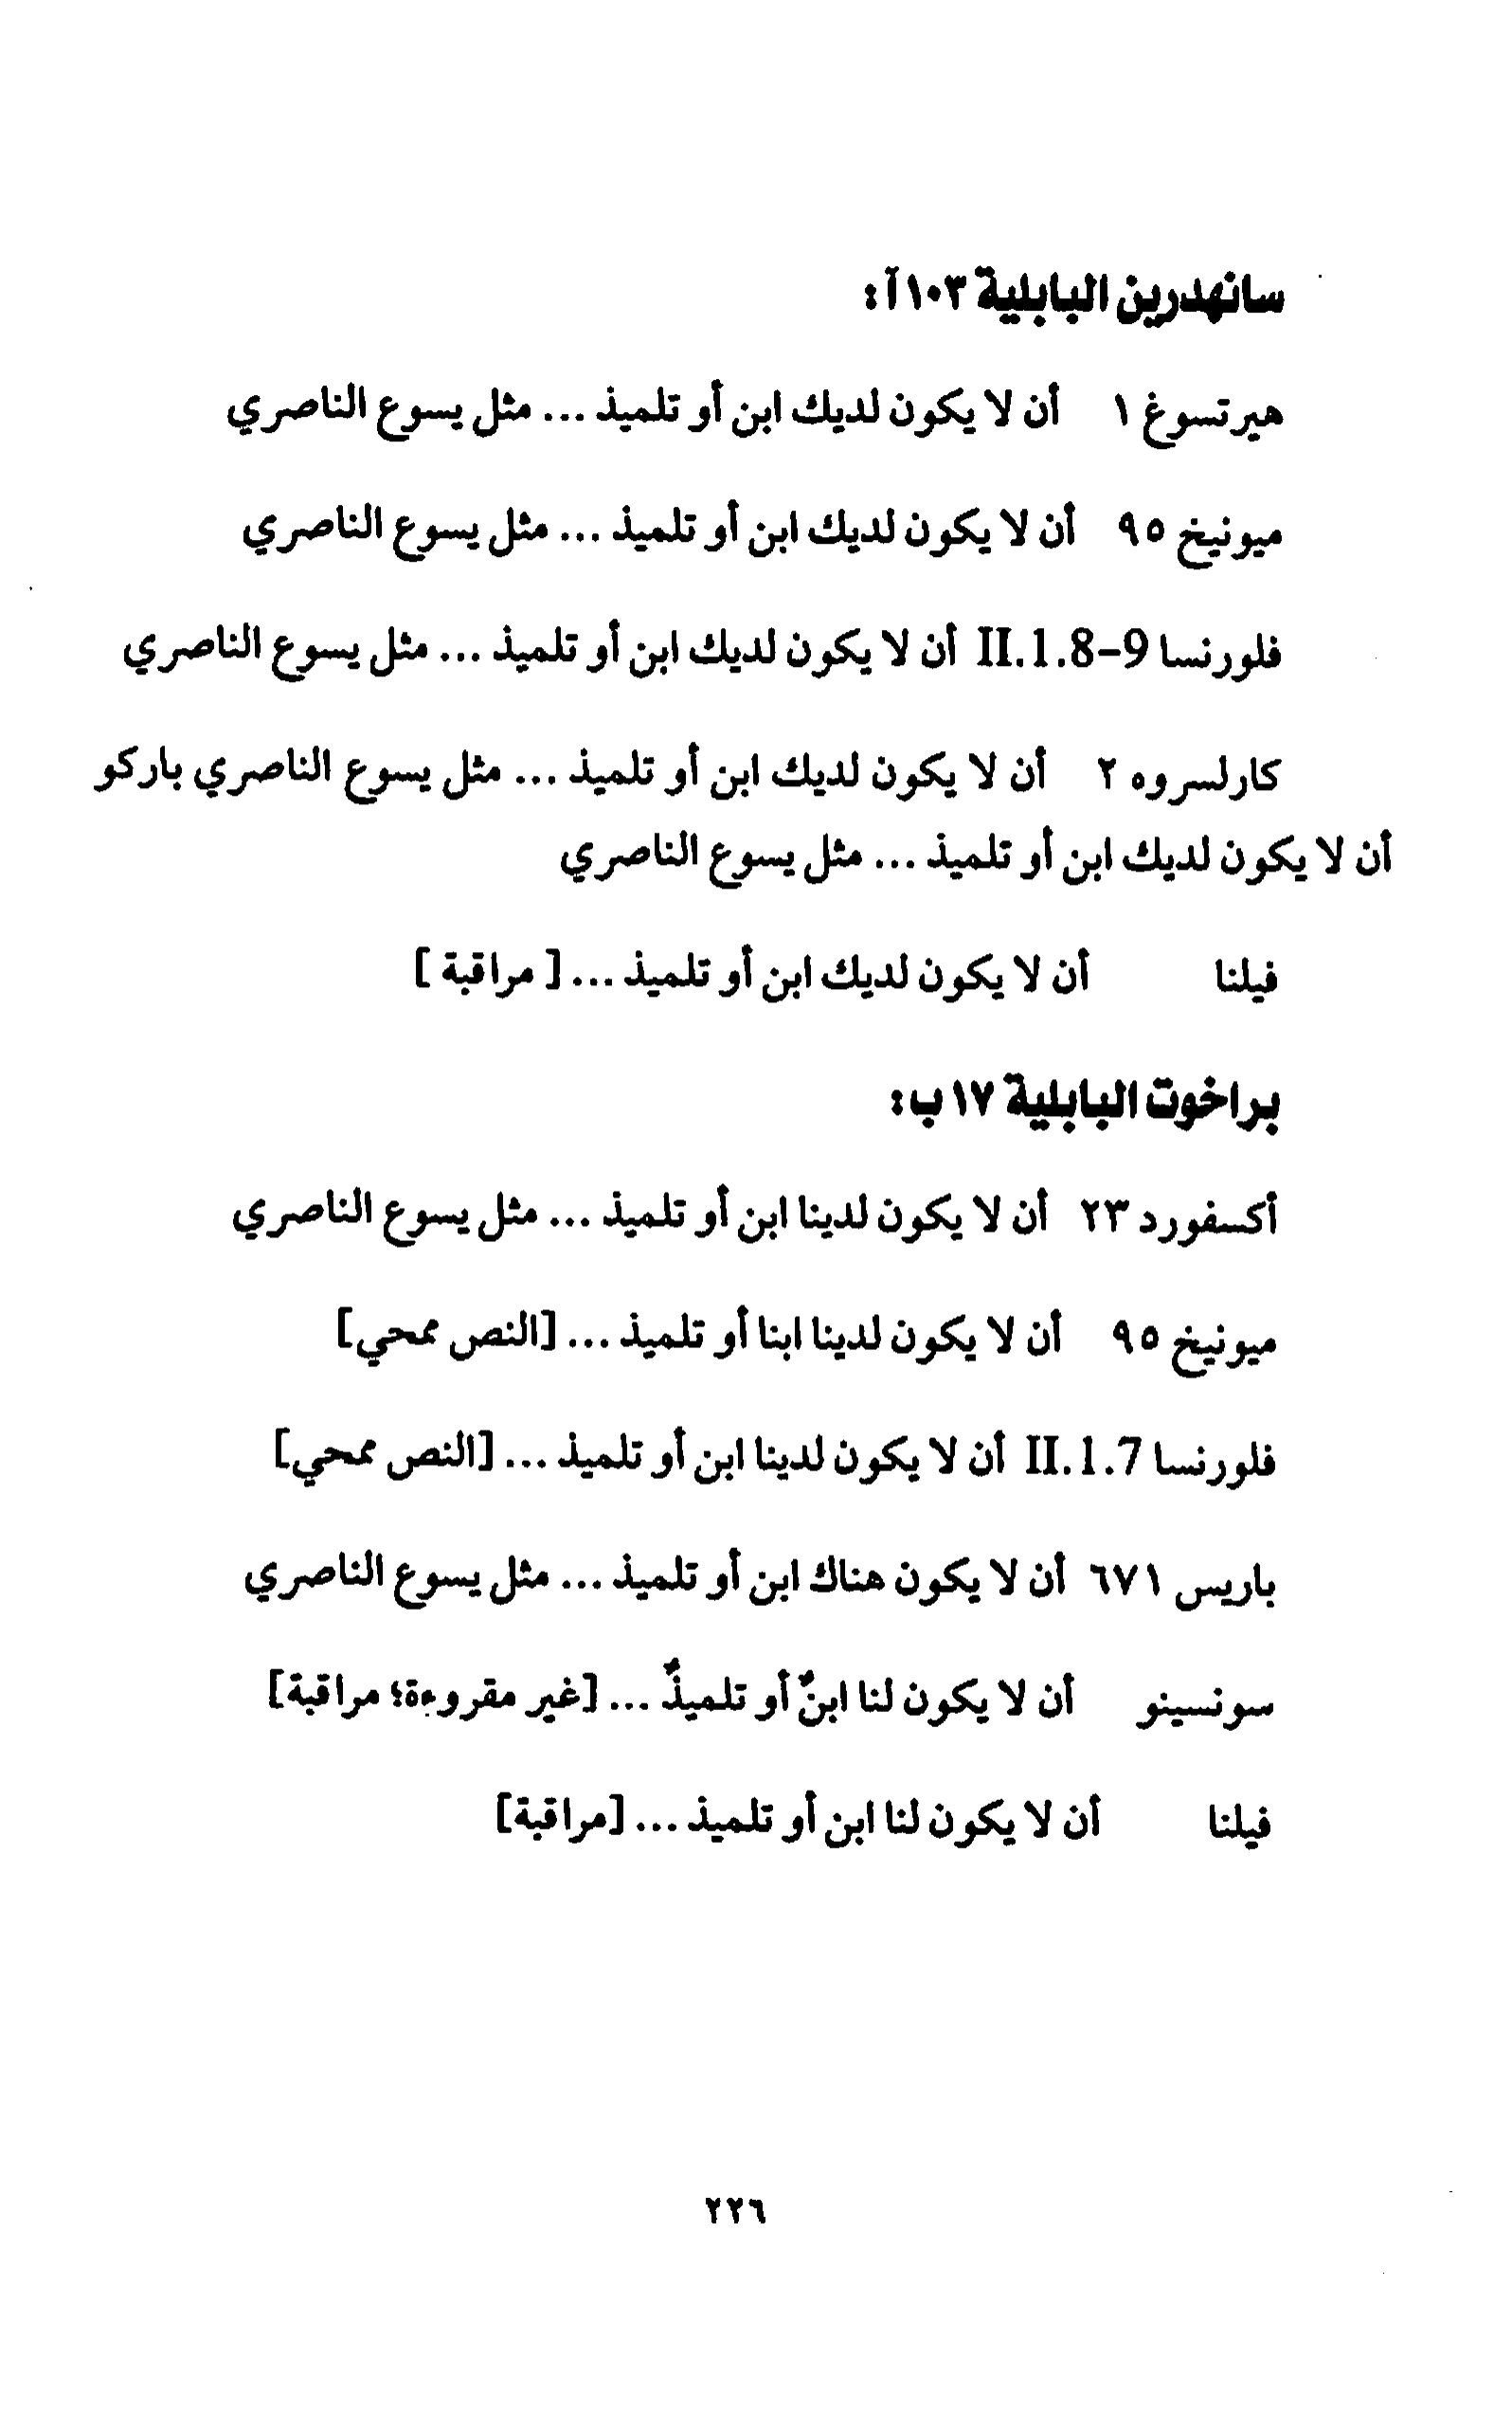 سانهدرين البابلية ١٠٣آ:
هيرتسوغ ١ أن لا يكون لديك ابن أو تلميذ ... مثل يسوع الناصري
ميونيخ ٩٥ أن لا يكون لديك ابن أو تلميذ ... مثل يسوع الناصري
فلورنسا II.1.8-9 أن لا يكون لديك ابن أو تلميذ ... مثل يسوع الناصري
كارلسروه ٢ أن لا يكون لديك ابن أو تلميذ ... مثل يسوع الناصري باركو
أن لا يكون لديك ابن أو تلميذ ... مثل يسوع الناصري
فيلنا أن لا يكون لديك ابن أو تلميذ ... [ مراقبة ]
براخوت البابلية ١٧ب:
أكسفورد ٢٣ أن لا يكون لدينا ابن أو تلميذ ... مثل يسوع الناصري
ميونيخ ٩٥ أن لا يكون لدينا ابنا أو تلميذ ... [النص ممحي]
فلورنسا II.1.7 أن لا يكون لدينا ابن أو تلميذ ... [النص ممحي]
باريس ٦٧١ أن لا يكون هناك ابن أو تلميذ ... مثل يسوع الناصري
سونسينو أن لا يكون لنا ابنٌ أو تلميذٌ ... [غير مقروءة؛ مراقبة]
فيلنا أن لا يكون لنا ابن أو تلميذ ... [مراقبة]
٢٢٦